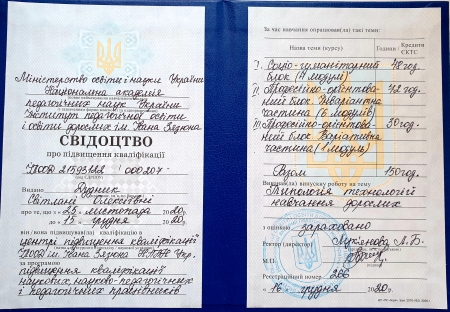 Міністерство освіти і науки України
Національна академія
педагогічних наук України
Інститут педагогічної освіти
і освіти дорослих ім. Івана Зязюна
СВІДОЦТВО
про підвищення кваліфікації
000207
Видано Рудник
Світлані Олексіївні
про те, що з 25 листопада 2020р.
до 15 грудня 2020р.
він/вона підвищував(ла) кваліфікацію в
центрі підвищення кваліфікації
ім. Івана Зязюна НАПН Укр.
за програмою
підвищення кваліфікації
науково-педагогічних
і педагогічних працівників
За час навчання опрацював(ла) такі теми:
Назва теми (курсу) Години Кредити ЄКТС
I. Соціо-гуманітарний
блок (4 модулі)
II. Професійно-орієнтова-
ний блок Інваріантна
частина (6 модулів)
III. Професійно-орієнтова- 30 год.
ний блок Варіативна
частина (1 модуль)
Разом 150 год.
Виконав(ла) випускну роботу на тему
Типологія технології
навчання дорослих
з оцінкою зараховано
Ректор (директор) Лук'янова Л.Б.
М.П.
Реєстраційний номер 266
16 грудня 2020р.